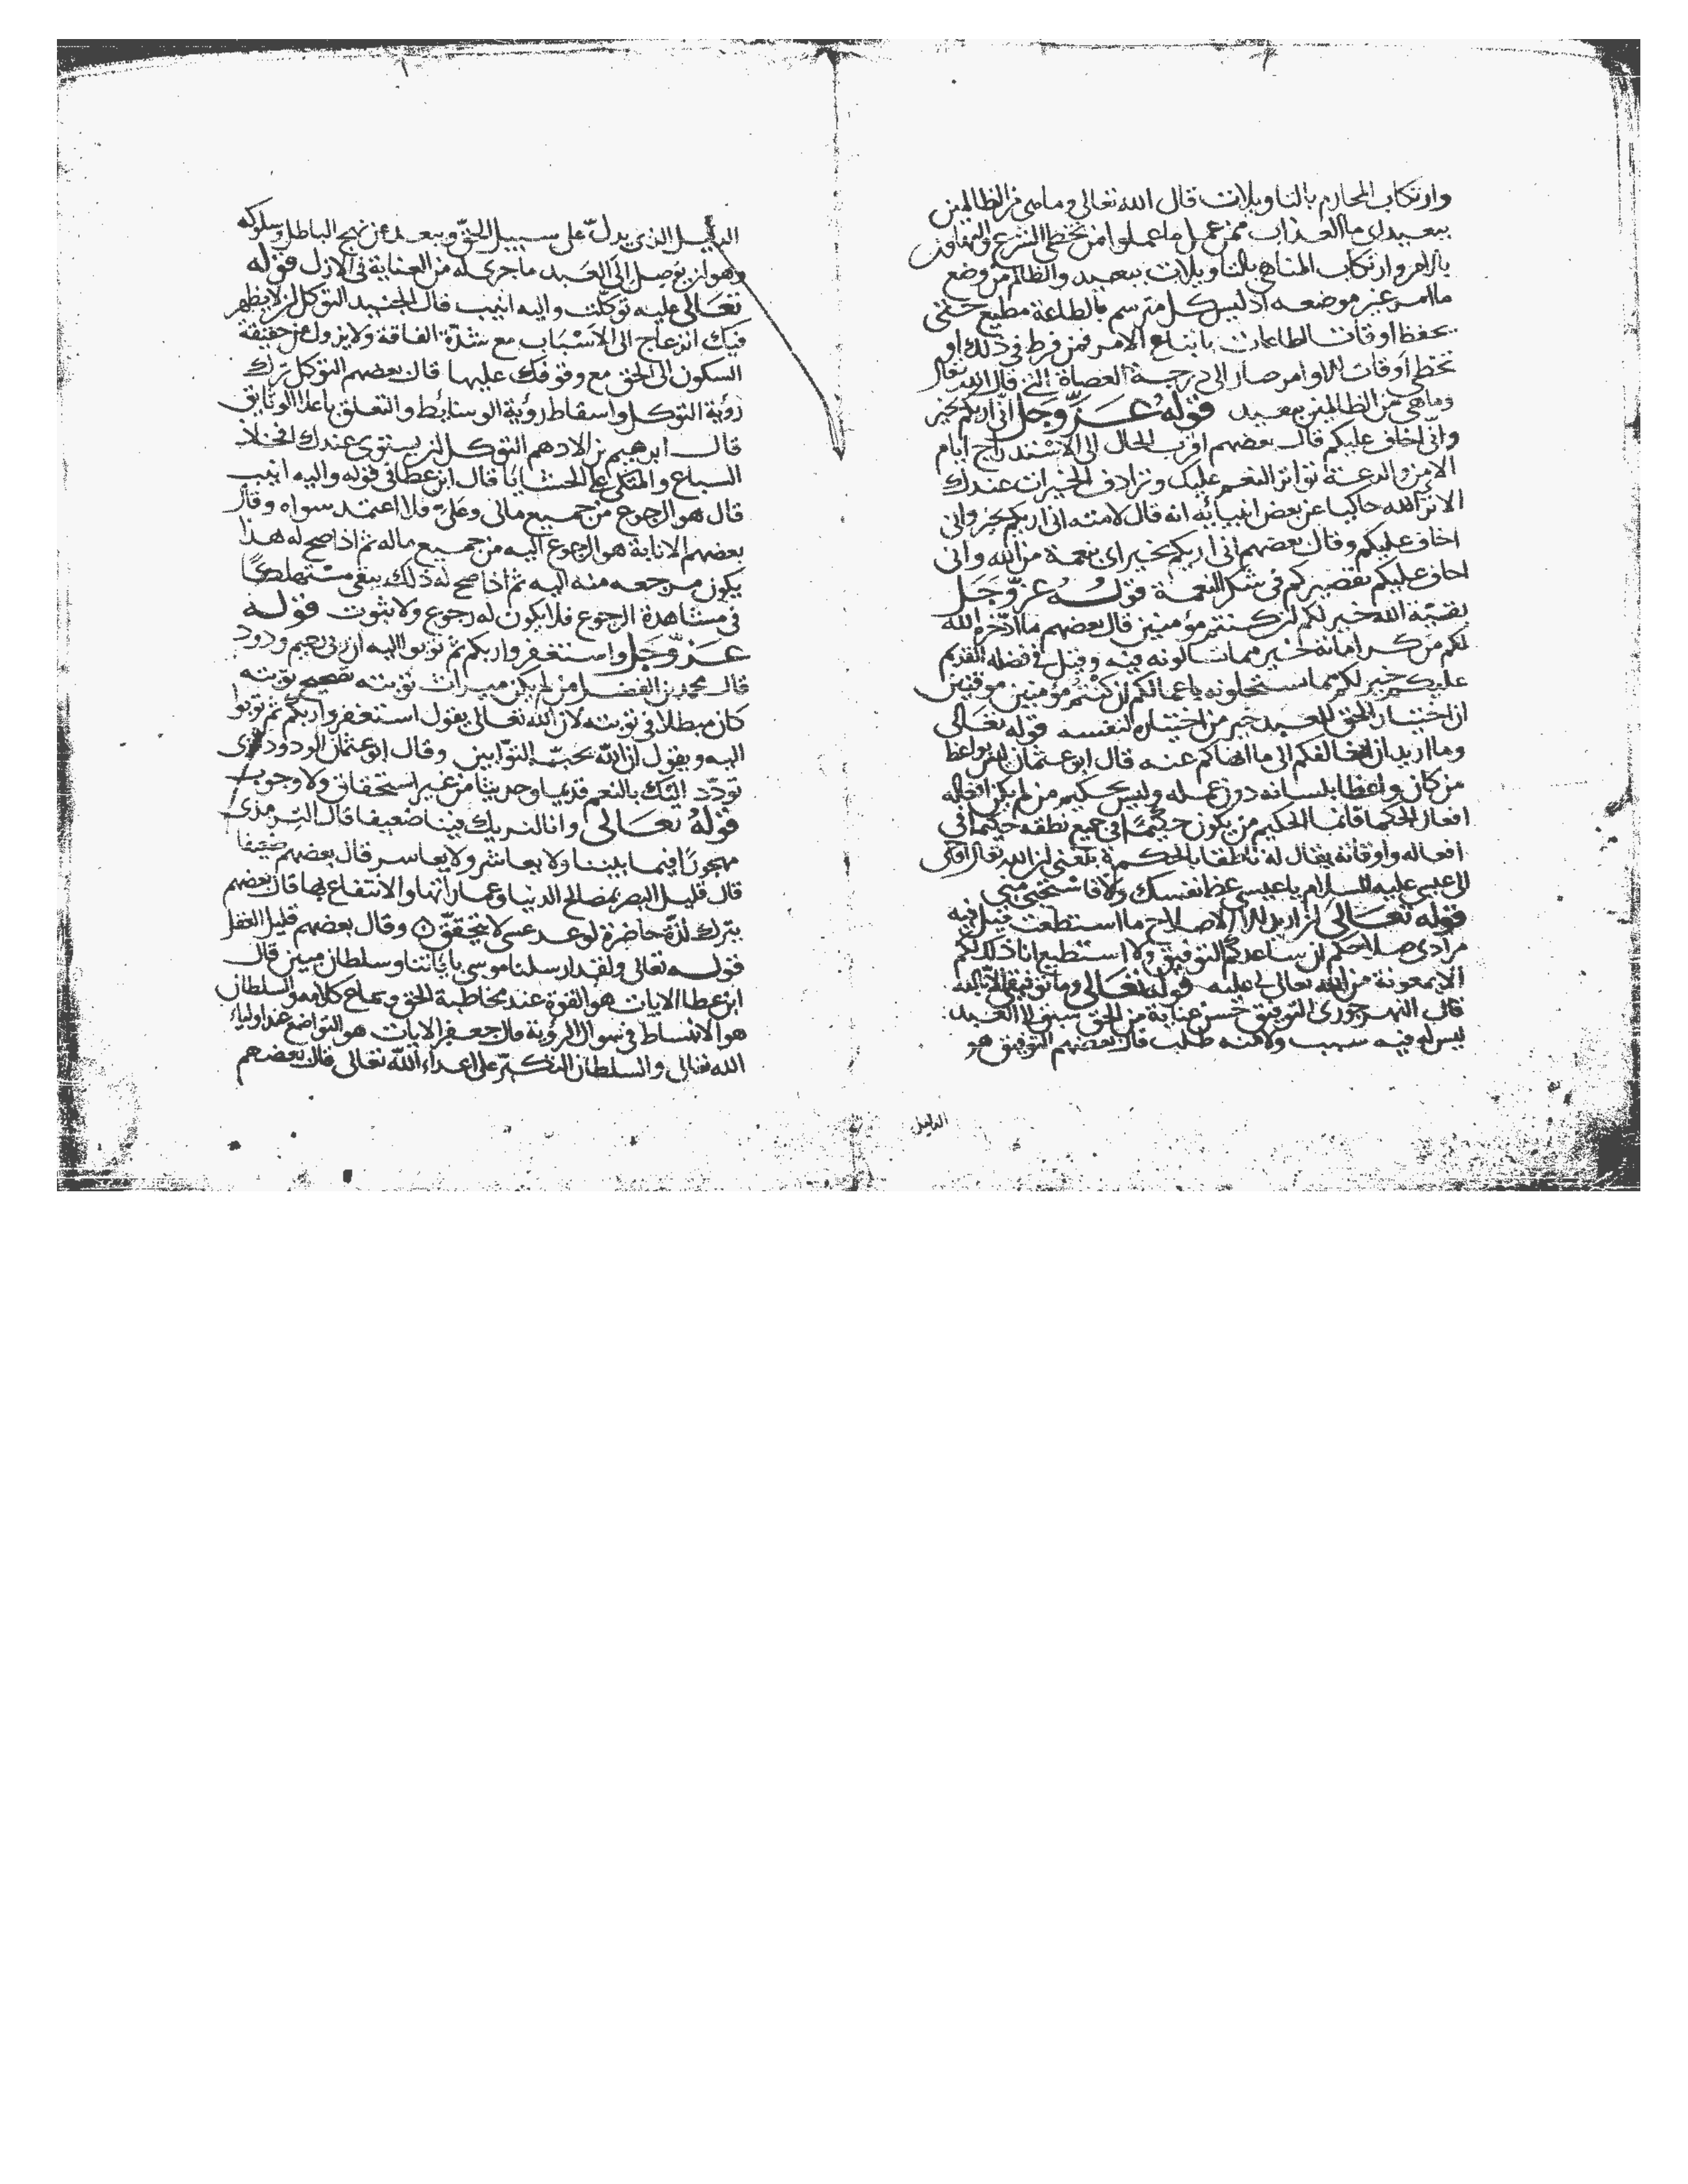 وارتكاب المحارم بالتاويلات قال الله تعالى وما هى من الظالمين
ببعيد اى ما العذاب ممن عمل ما عملوا من تخطى الشرع والتهاون
بالامر وارتكاب المناهى بالتاويلات ببعيد والظالم من وضع
ما امر غير موضعه اذ ليس كل مترسم بالطاعة مطيع حتى
يحفظ اوقات الطاعات باتباع الامر فمن فرط فى ذلك او
تخطى اوقات الاوامر صار الى درجة العصاة التى قال الله تعالى
وما هى من الظالمين ببعيد قوله عز وجل انى اريكم بخير
وانى اخاف عليكم قال بعضهم اقرب الحال الى الاستدراج ايام
الامن والدعة تواتر النعم عليك وترادف الخيرات عندك
الا تر الله حاكيا عن بعض انبيائه انه قال لامته انى اريكم بخير وانى
اخاف عليكم وقال بعضهم انى اريكم بخير اى بنعمة من الله وانى
اخاف عليكم تقصيركم فى شكر النعمة قوله عز وجل
بقية الله خير لكم ان كنتم مؤمنين قال بعضهم ما ادخره الله
لكم من كراماته خير مما تسالونه فيه وقيل فى فضله القديم
عليكم خير لكم مما تستجلبونه باعمالكم ان كنتم مؤمنين موقنين
ان اختيار الحق للعبد خير من اختياره لنفسه قوله تعالى
وما اريد ان اخالفكم الى ما انهاكم عنه قال ابو عثمان ليس بواعظ
من كان واعظا بلسانه دون عمله وليس بحكيم من لم يكن افعاله
افعال الحكما فانما الحكيم من يكون حكيما فى جميع نطقه حكيما فى
افعاله واوقاته يقال له ناطقا بالحكمة بلغنى ان الله تعالى اوحى
الى عيسى عليه السلام يا عيسى عظ نفسك والا فاستحى منى
قوله تعالى ان اريد الا الاصلاح ما استطعت قيل فيه
مرادى صلاحكم ان ساعدكم التوفيق ولا استطيع انا ذلك لكم
الا بمعونة من الله تعالى لى عليه قوله تعالى وما توفيقى الا بالله
قال النهرجورى التوفيق حسن عناية من الحق سبق الى العبد
ليس له فيه سبب ولا منه طلب قال بعضهم التوفيق هو
الدليل
الدليل الذى يدل على سبيل الحق ويبعد عن نهج الباطل وسلوكه
وهو ان يوصل الى العبد ما جرى له من العناية فى الازل قوله
تعالى عليه توكلت واليه انيب قال الجنيد التوكل ان لا يظهر
فيك انزعاج الى الاسباب مع شدة الفاقة ولا يزول عن حقيقة
السكون الى الحق مع وقوفك عليها قال بعضهم التوكل ترك
رؤية التوكل واسقاط رؤية الوسائط والتعلق باعلا الوثايق
قال ابرهيم بن الادهم التوكل ان يستوى عندك افخاذ
السباع والمتكى على الحشايا قال ابن عطا فى قوله واليه انيب
قال هو الرجوع من جميع مالى وعلى فلا اعتمد سواه وقال
بعضهم الانابة هو الرجوع اليه من جميع ماله ثم اذا صح له هذا
يكون مرجعه منه اليه ثم اذا صح له ذلك يبقى مستهلكا
فى مشاهدة الرجوع فلا يكون له رجوع ولا ثبوت قوله
عز وجل واستغفروا ربكم ثم توبوا اليه ان ربى رحيم ودود
قال محمد بن الفضل من لم يكن ميراث توبته تصحيح توبته
كان مبطلا فى توبته لان الله تعالى يقول استغفروا ربكم ثم توبوا
اليه ويقول ان الله يحب التوابين وقال ابو عثمان الودود الذى
تودد اليك بالنعم قديما وحديثا من غير استحقاق ولا وجوب
قوله تعالى وانا لنريك فينا ضعيفا قال الترمذى
مهجورا فيما بيننا ولا يعاشر ولا يعاسر قال بعضهم ضعيفا
قال قليل البصر بمصالح الدنيا وعماراتها والانتفاع بها قال بعضهم
بترك لذة حاضرة لوعد عسى لا يتحقق وقال بعضهم قليل العقل
قوله تعالى ولقد ارسلنا موسى باياتنا وسلطان مبين قال
ابن عطا الايات هو القوة عند مخاطبة الحق وسماع كلامه والسلطان
هو الانبساط فى سوال الرؤية قال جعفر الايات هو التواضع عند اولياء
الله تعالى والسلطان التكبر على اعداء الله تعالى قال بعضهم